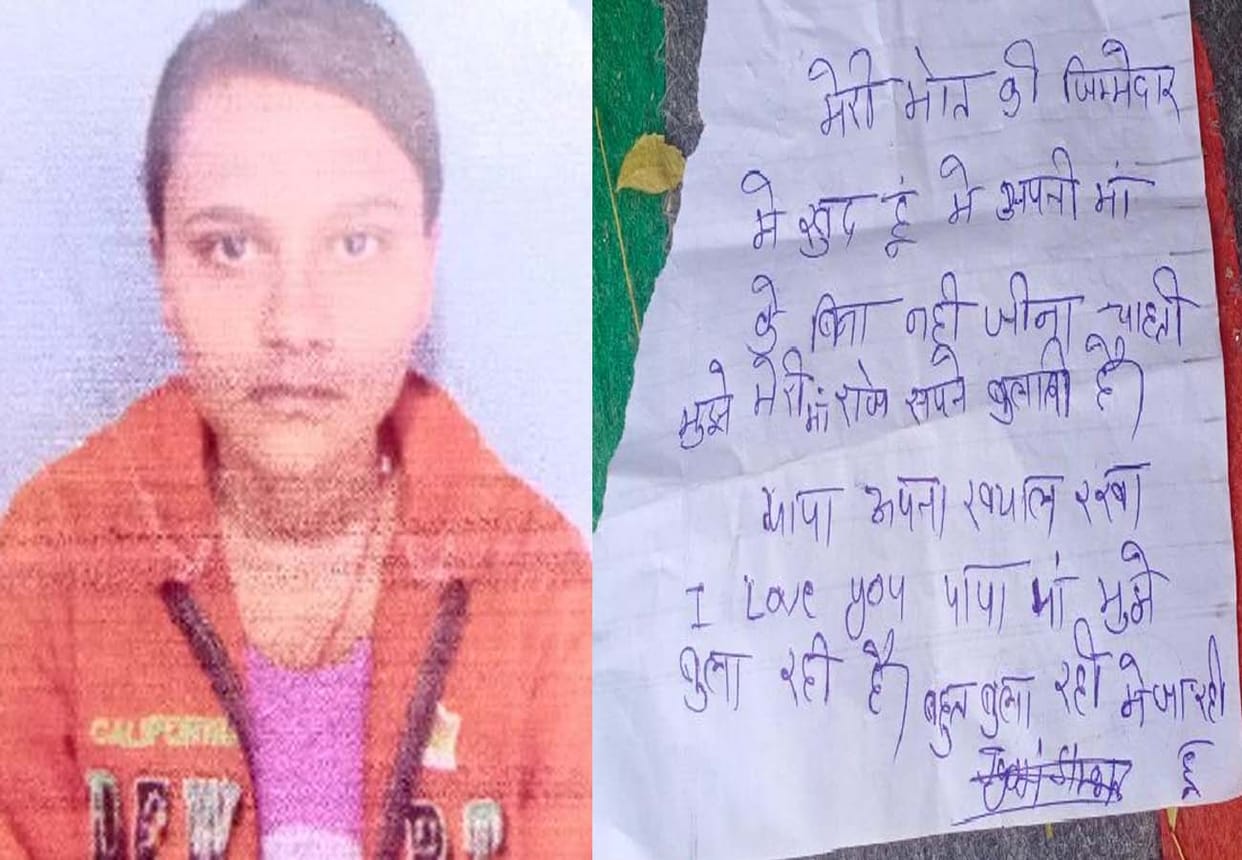 CALIFORNI
DEW
मेरी मोत की जिम्मेदार
मे खुद हूं मे अपनी मां
के बिना नही जीना चाहती
मुझे मेरी मां रोज सपने बुलाती है।
पापा अपना ख्याल रखना
I Love you पापा मां मुझे
बुला रही है। बहुत बुला रही मे जा रही
हूं